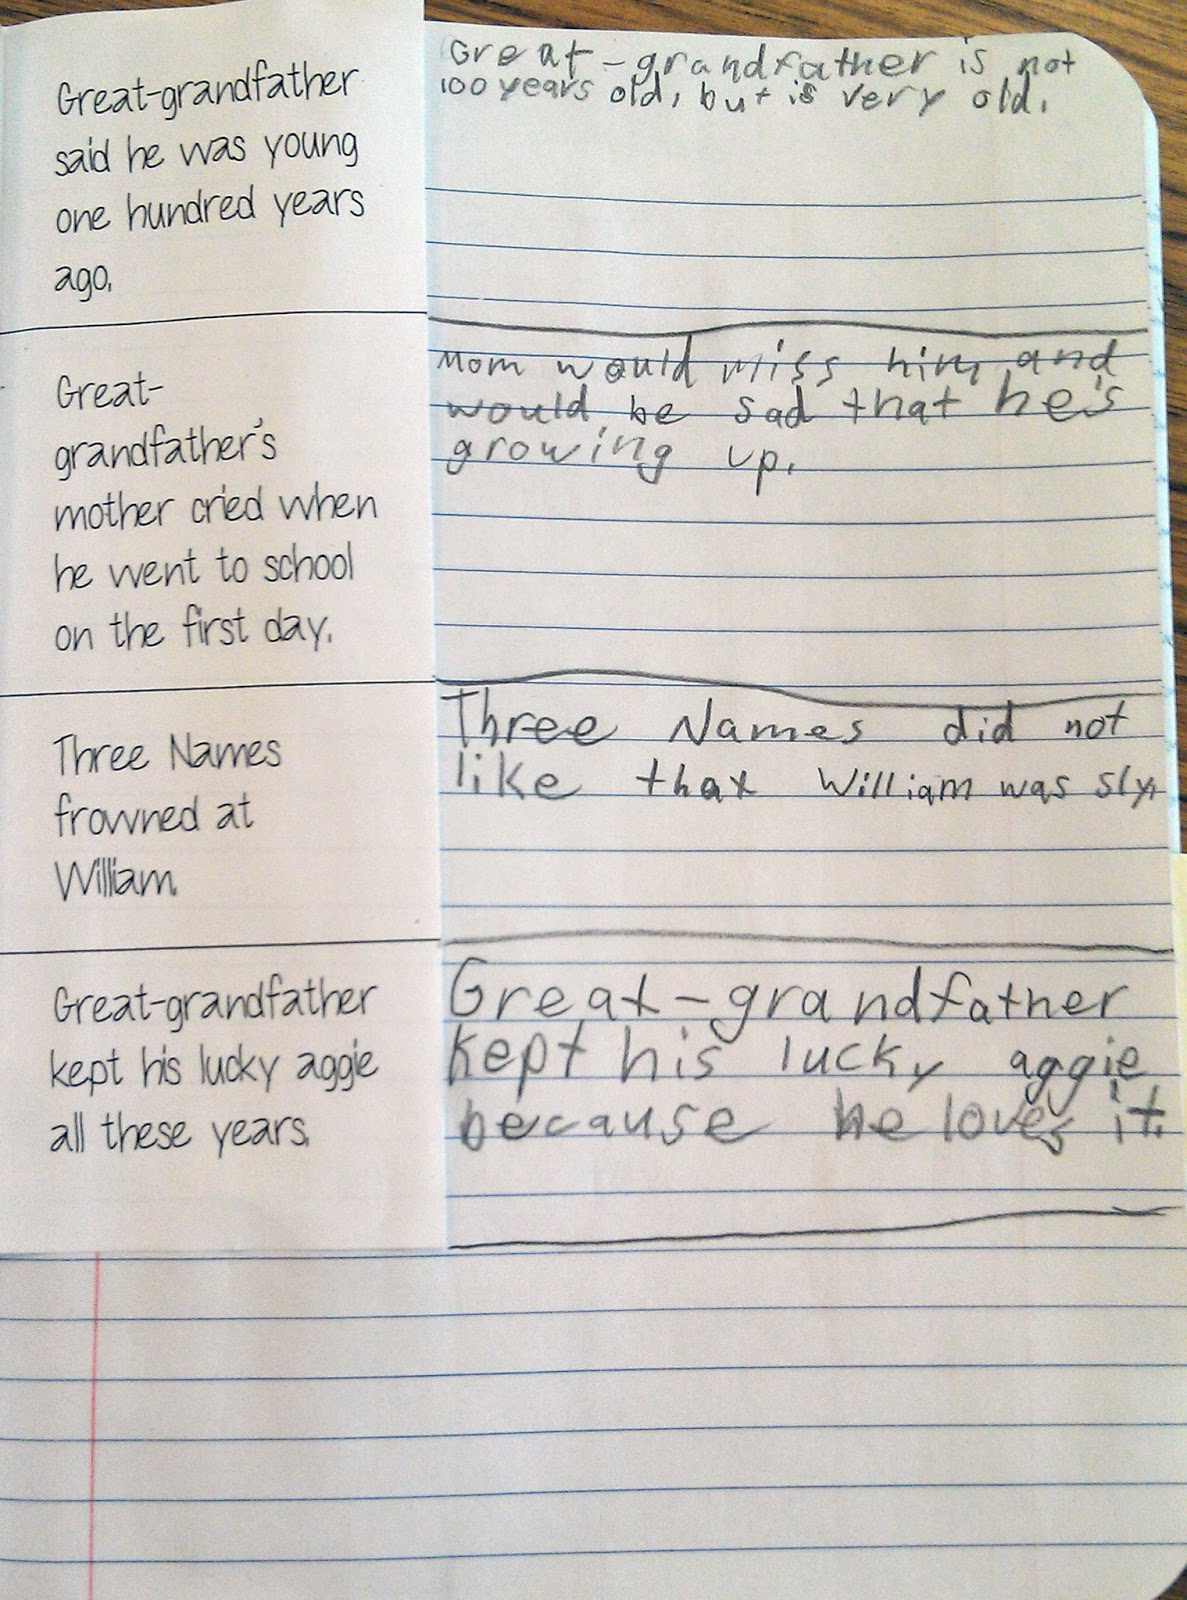 Great-grandfather
said he was young
one hundred years
ago.
Great-grandfather is not
100 years old, but is very old.
Great-
grandfather's
mother cried when
he went to school
on the first day.
Mom would miss him and
would be sad that he's
growing up.
Three Names
frowned at
William.
Three Names did not
like that William was sly.
Great-grandfather
kept his lucky aggie
all these years.
Great-grandfather
kept his lucky aggie
because he loves it.